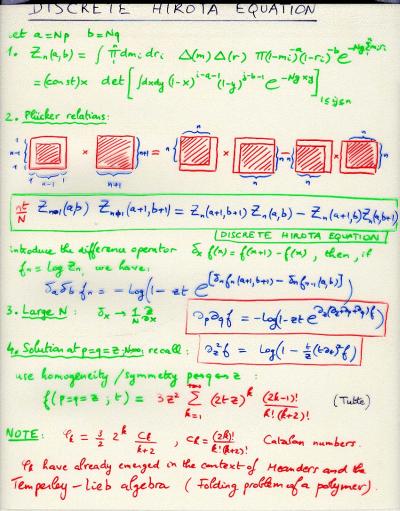 DISCRETE HIROTA EQUATION
Let a=Np b=Nq
1. Zn(a,b) = ∫ ∏ dmi dri Δ(m) Δ(r) ∏(1-mi)^-a (1-ri)^-b e^-Ng Σ mi ri
= (const)× det [∫dxdy (1-x)^i-a-1 (1-y)^j-b-1 e^-Ng xy] 1≤i,j≤n
2. Plücker relations:
1 n-1 1 × n+1 = n × n - n × n
1 n-1 1 n+1 n n
Zn-1(a,b) Zn+1(a+1,b+1) = Zn(a+1,b+1) Zn(a,b) - Zn(a+1,b) Zn(a,b+1)
DISCRETE HIROTA EQUATION
introduce the difference operator δx f(x) = f(x+1) - f(x), then, if
fn = log Zn, we have:
δa δb fn = - log(1- zt e^[δn fn(a+1,b+1) - δn fn-1(a,b)])
3. Large N: δx → 1/N ∂/∂x
4. Solution at p=q=z; recall: ∂z² f = log(1 - t/z (t∂t)² f)
use homogeneity/symmetry z:
f(p=q=z ; t) = 3z² Σ k=1 +∞ (2tz)^k (2k-1)! / k!(k+2)! (Tutte)
NOTE: φk = 3/2 2^k Ck/k+2 , Ck = (2k)!/k!(k+1)! Catalan numbers.
φk have already emerged in the context of Meanders and the
Temperley-Lieb algebra (Folding problem of a polymer).